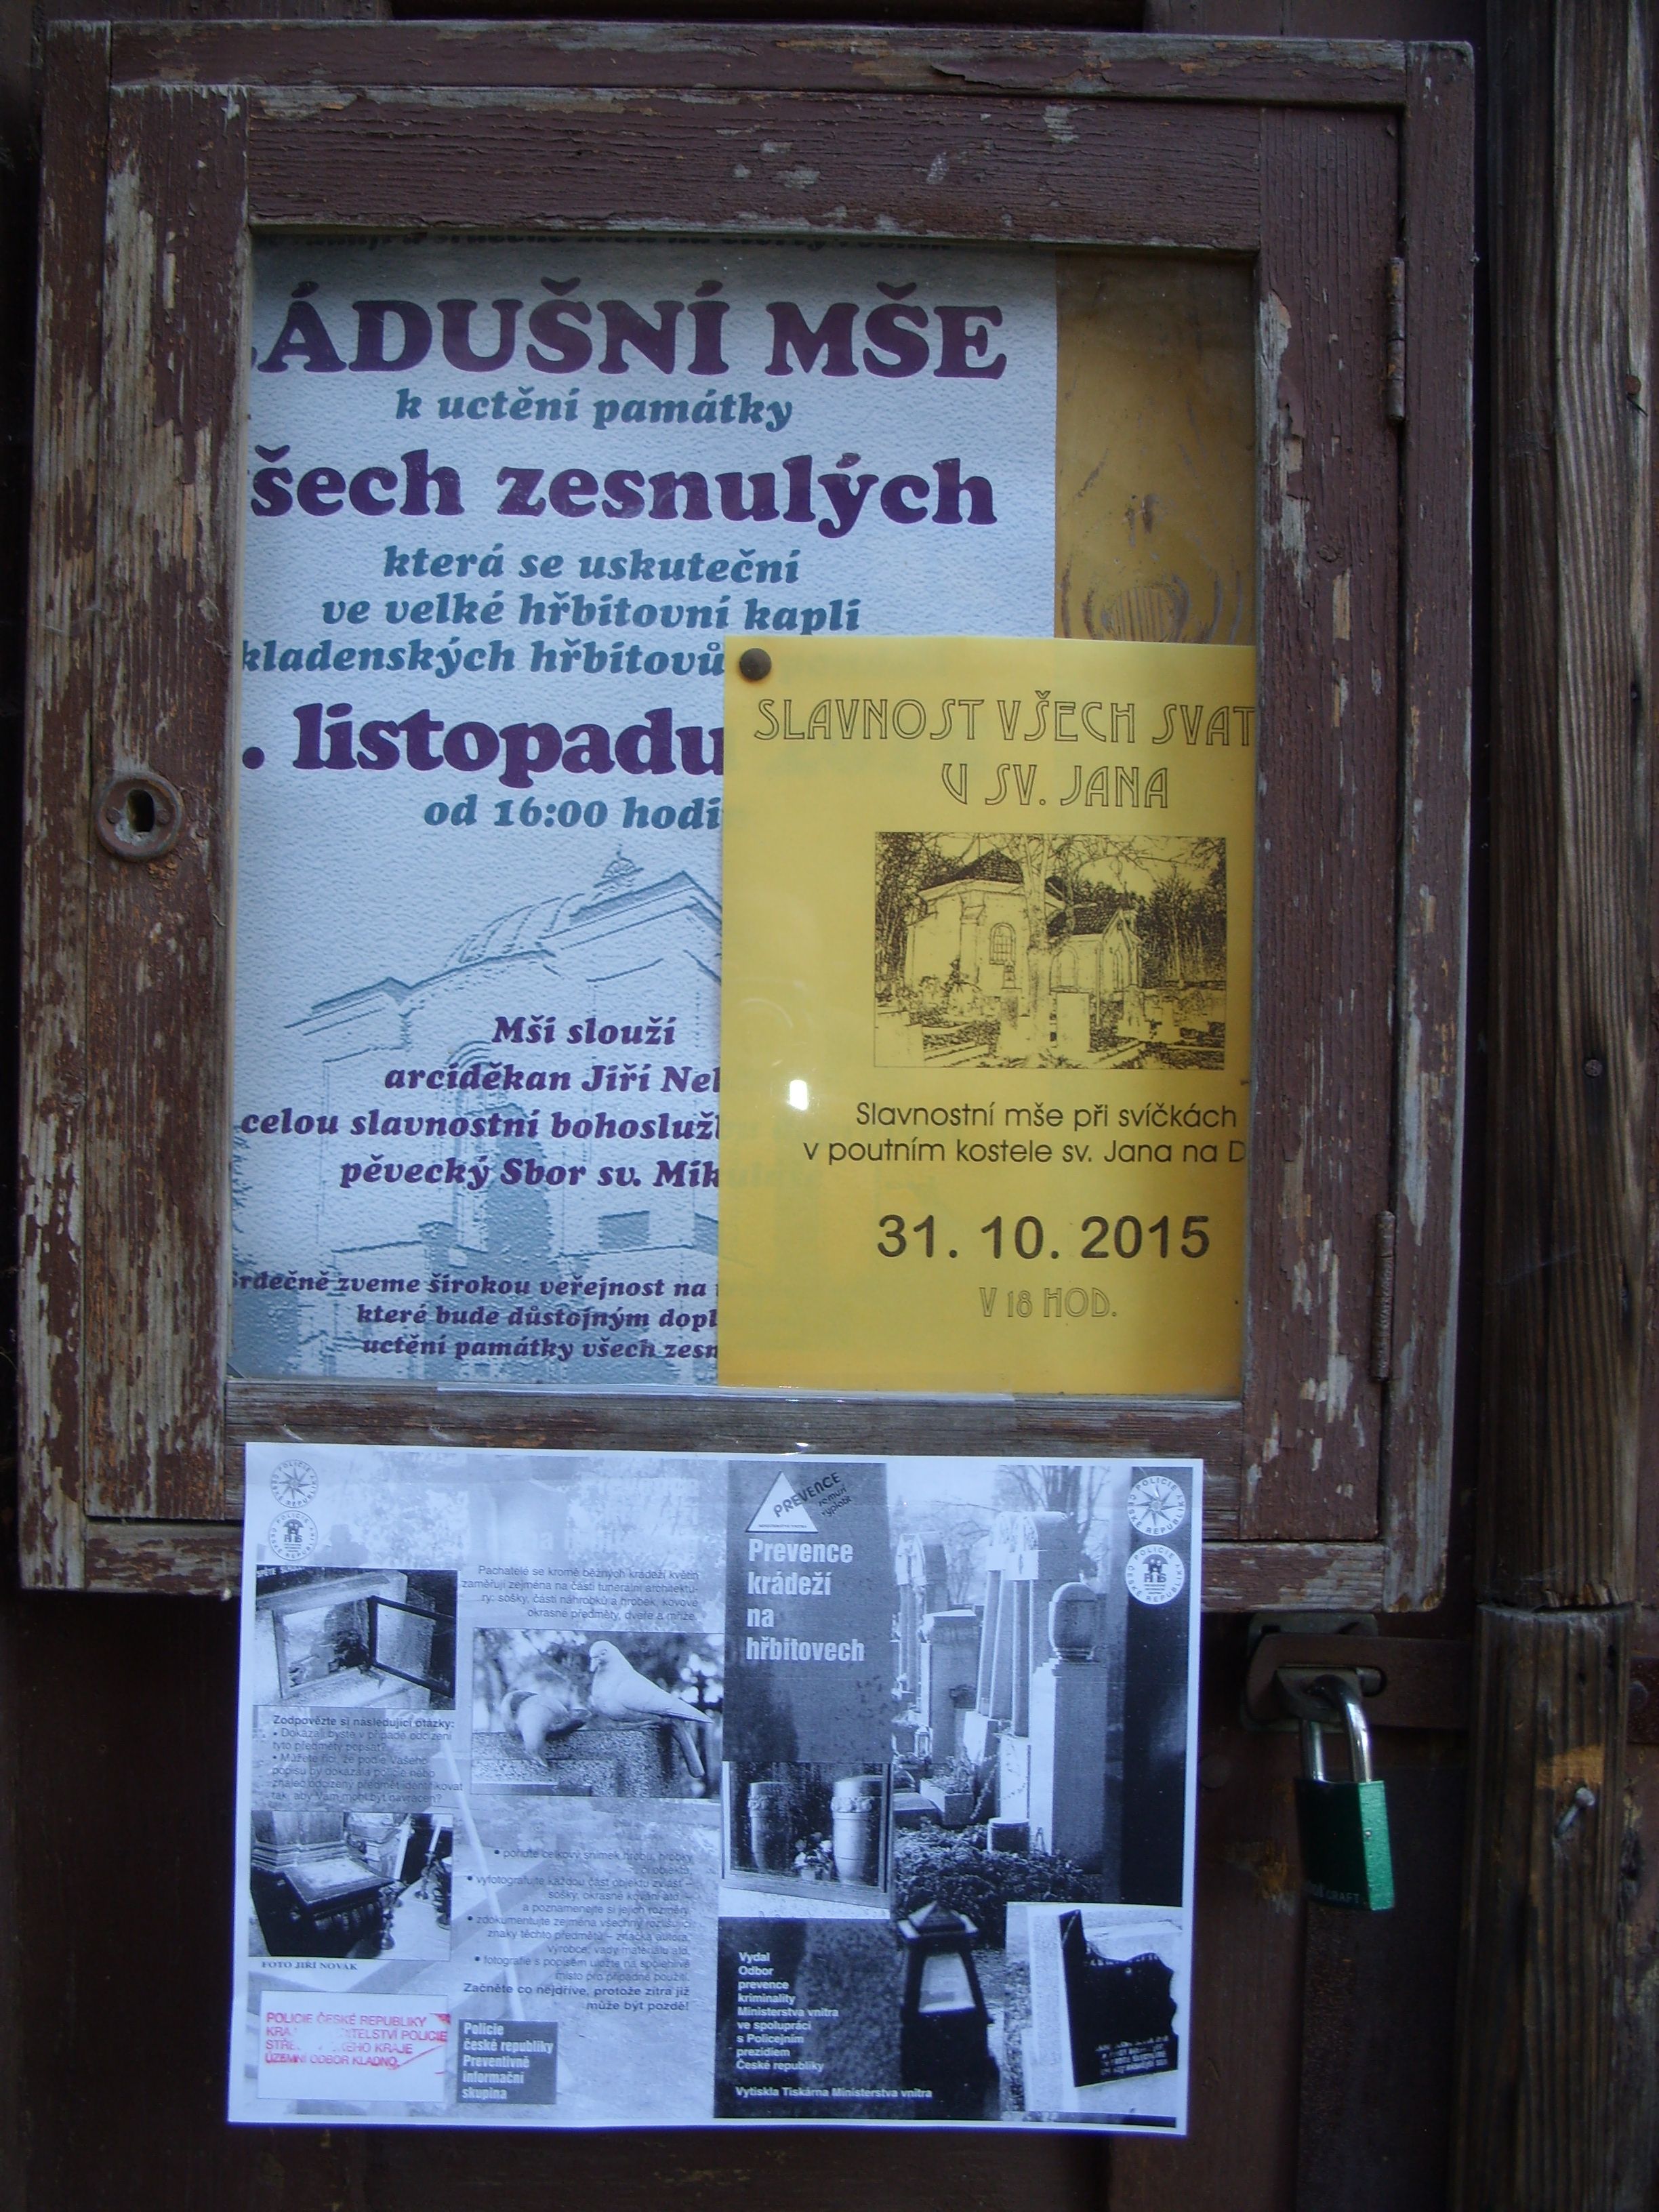 ÁDUŠNÍ MŠE
k uctění památky
šech zesnulých
která se uskuteční
ve velké hřbitovní kapli
kladenských hřbitovů
. listopadu
od 16:00 hodi
Mši slouží
arciděkan Jiří Ne
celou slavnostní bohosluž
pěvecký Sbor sv. Mik
rdečně zveme širokou veřejnost na
které bude důstojným dopl
uctění památky všech zesn
SLAVNOST VŠECH SVAT
U SV. JANA
Slavnostní mše při svíčkách
v poutním kostele sv. Jana na D
31. 10. 2015
V 18 HOD.
Pachatelé se kromě běžných krádeží květin
zaměřují zejména na části funerální architektu-
ry: sošky, části náhrobků a hrobek, kovové
okrasné předměty, dveře a mříže.
Zodpovězte si následující otázky:
• Dokázali byste v případě odcizení
tyto předměty popsat?
• Můžete říci, že podle Vašeho
popisu by dokázala policie nebo
znalec odcizený předmět identifikovat
tak, aby Vám mohl být navrácen?
• pořiďte celkový snímek hrobu, hrobky
či objektu,
• vyfotografujte každou část objektu zvlášť –
sošky, okrasné kování atd. –
a poznamenejte si jejich rozměry,
• zdokumentujte zejména všechny rozlišující
znaky těchto předmětů – značka autora,
výrobce, vady materiálu atd.
• fotografie s popisem uložte na spolehlivé
místo pro případné použití.
Začněte co nejdříve, protože zítra již
může být pozdě!
FOTO JIŘÍ NOVÁK
POLICIE ČESKÉ REPUBLIKY
KRAJ TELSTVÍ POLICIE
STŘE ÉHO KRAJE
ÚZEMNÍ ODBOR KLADNO
Policie
české republiky
Preventivně
informační
skupina
PREVENCE
se musí
vyplatit
Prevence
krádeží
na
hřbitovech
POLICIE
ČESKÉ REPUBLIKY
Vydal
Odbor
prevence
kriminality
Ministerstva vnitra
ve spolupráci
s Policejním
prezidiem
České republiky
Vytiskla Tiskárna Ministerstva vnitra